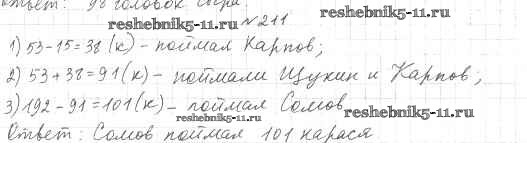 Ответ: 98 головок сыра.
reshebnik5-11.ru
№ 211
1) 53-15=38 (к) - поймал Карпов;
2) 53+38=91 (к) - поймали Щукин и Карпов;
3) 192-91=101 (к) - поймал Сомов
reshebnik5-11.ru reshebnik5-11.ru
Ответ: Сомов поймал 101 карася